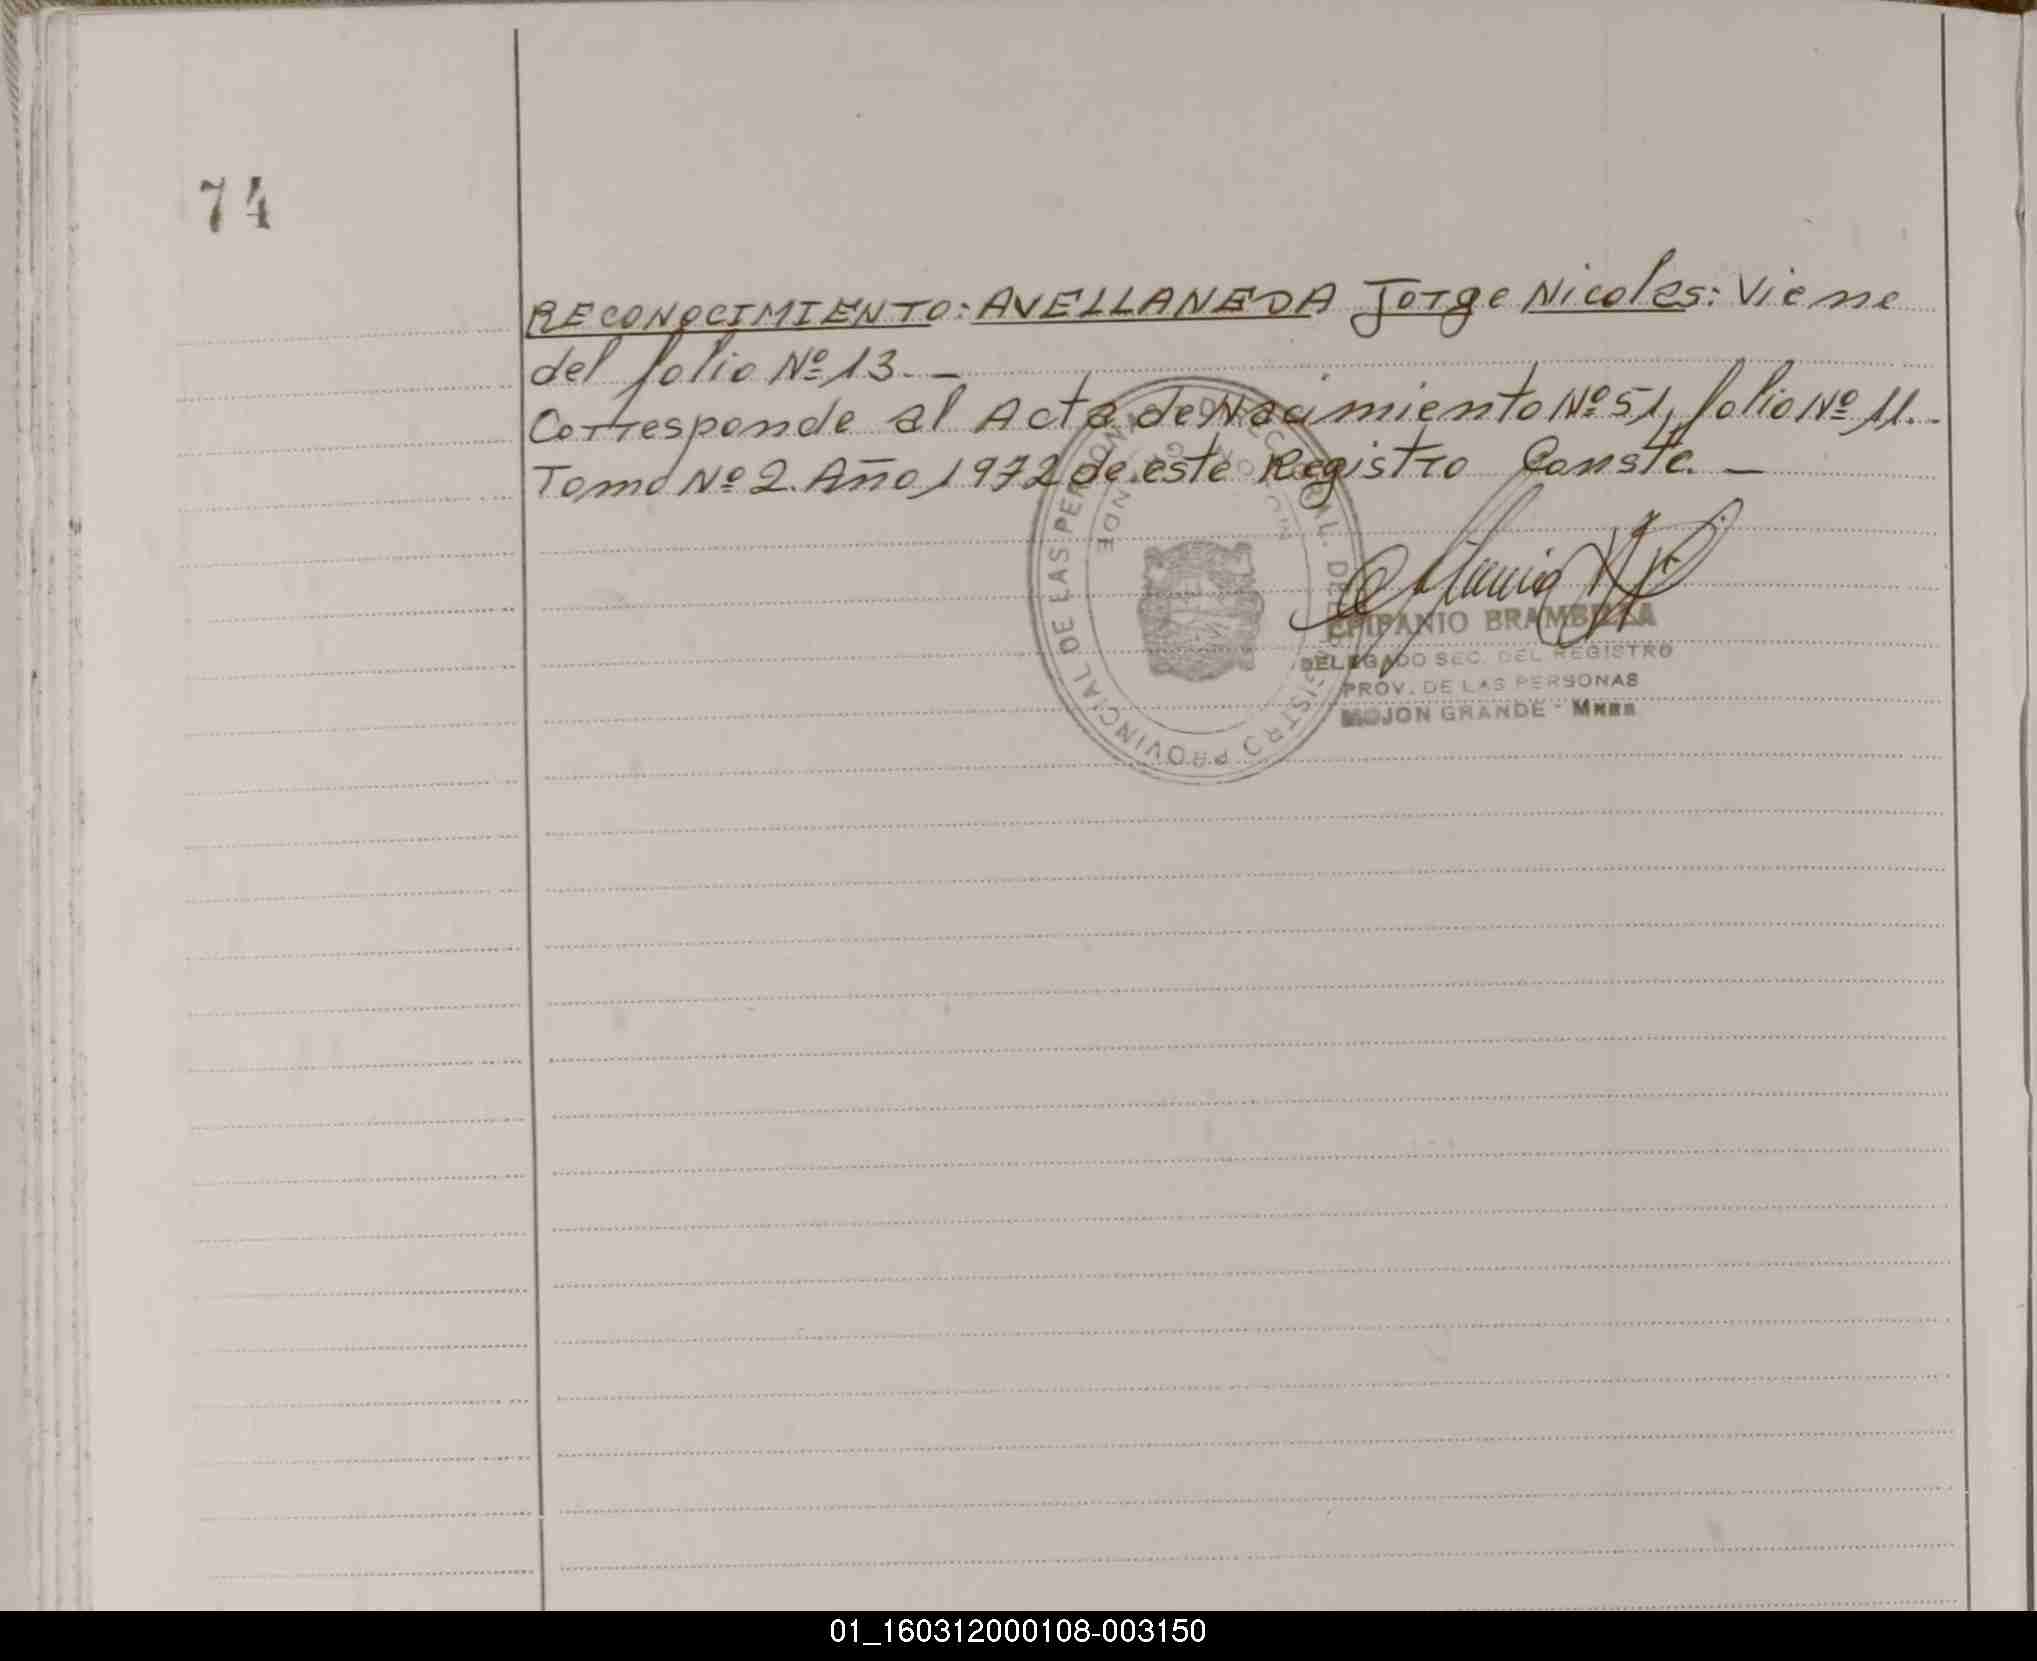 74
RECONOCIMIENTO: AVELLANEDA Jorge Nicolas: Viene
del folio Nº 13. —
Corresponde al Acta de Nacimiento Nº 51, folio Nº 11. -
Tomo Nº 2. Año 1972 de este Registro Conste. —
EPIFANIO BRAMBILLA
DELEGADO SEC. DEL REGISTRO
PROV. DE LAS PERSONAS
MOJON GRANDE - Mnes
REGISTRO PROVINCIAL DE LAS PERSONAS
01_160312000108-003150